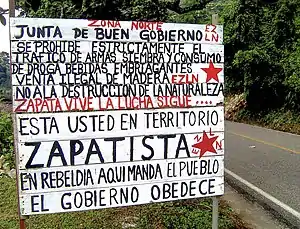 ZONA NORTE
JUNTA DE BUEN GOBIERNO EZLN
SE PROHIBE ESTRICTAMENTE EL
TRAFICO DE ARMAS, SIEMBRA Y CONSUMO
DE DROGA, BEBIDAS EMBRIAGANTES
VENTA ILEGAL DE MADERA EZLN
NO A LA DESTRUCCION DE LA NATURALEZA
ZAPATA VIVE LA LUCHA SIGUE....
ESTA USTED EN TERRITORIO
ZAPATISTA
EN REBELDIA AQUI MANDA EL PUEBLO
Y EL GOBIERNO OBEDECE